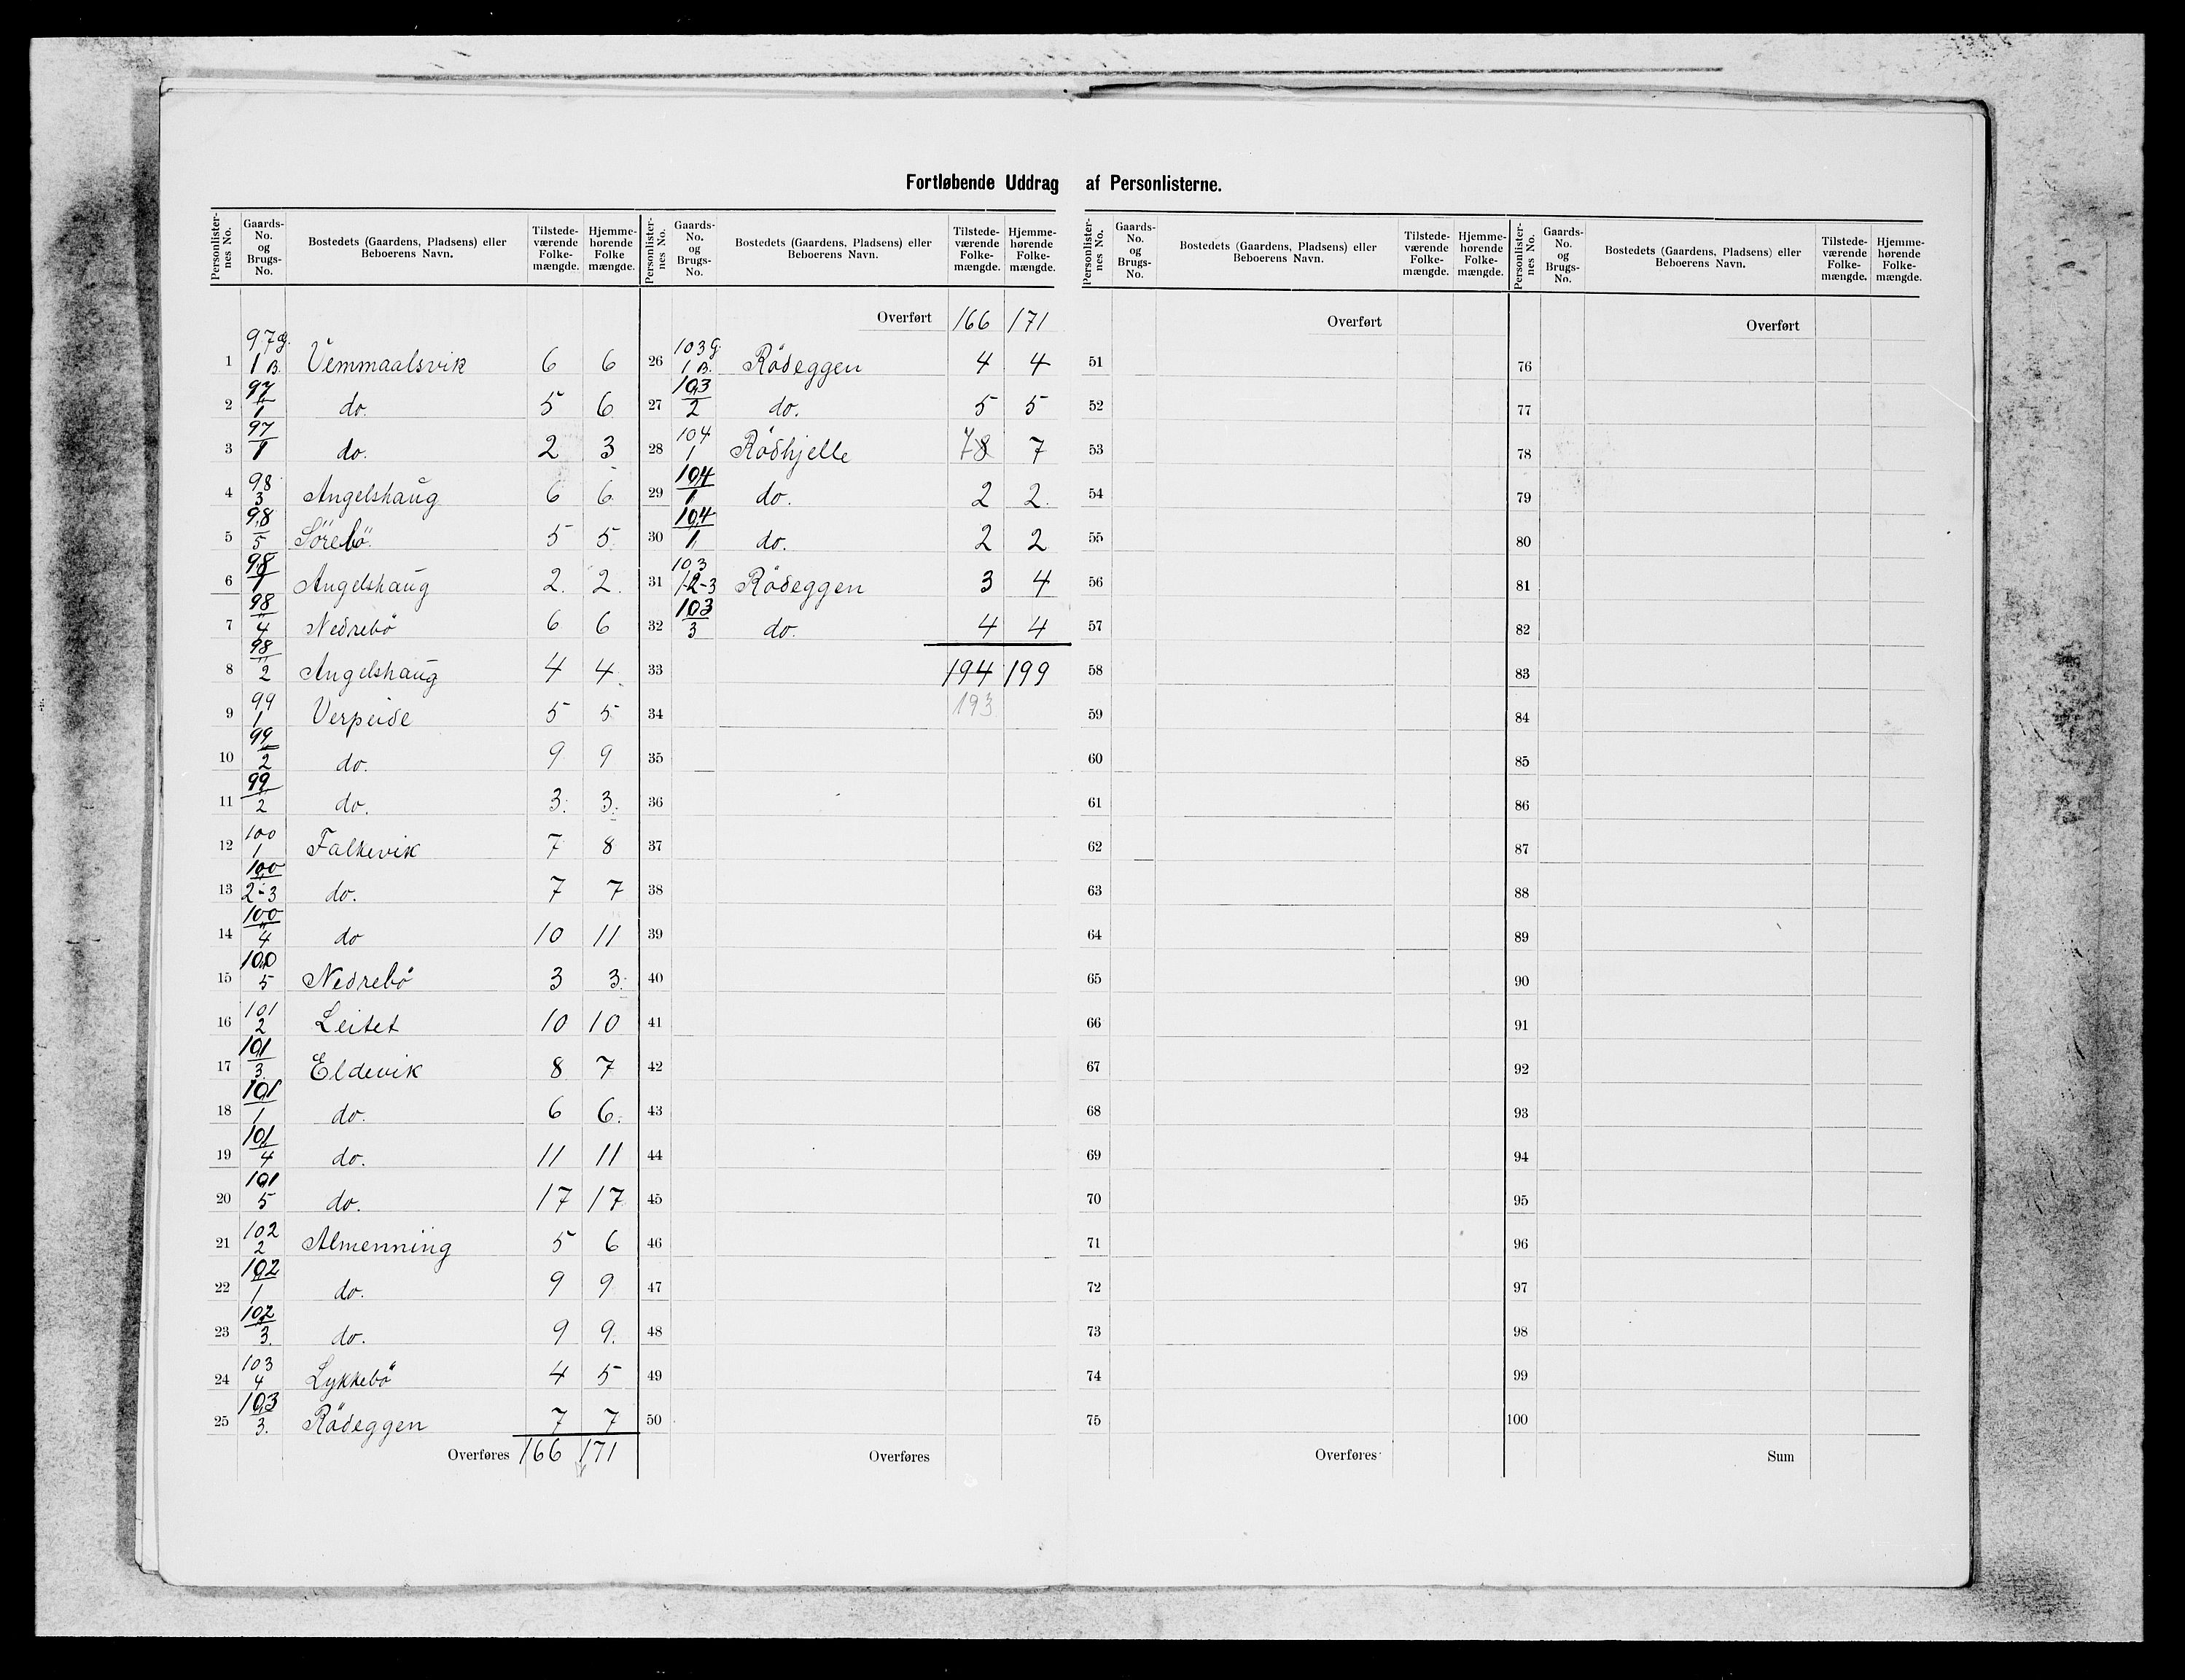 Fortløbende Uddrag af Personlisterne.
Personlister-nes No. Gaards-No. og Brugs-No. Bostedets (Gaardens, Pladsens) eller Beboerens Navn. Tilstede-værende Folke-mængde. Hjemme-hørende Folke mængde.
1 97 g. 1 B. Vemmaalsvik 6 6
2 97/1 do. 5 6
3 97/1 do. 2 3
4 98/3 Angelshaug 6 6
5 98/5 Sörebö. 5 5
6 98/1 Angelshaug 2. 2.
7 98/4 Nedrebö 6 6
8 98/2 Angelshaug 4 4
9 99/1 Verpeide 5 5
10 99/2 do. 9 9
11 99/2 do. 3. 3.
12 100/1 Falkevik 7 8
13 100/2-3 do. 7 7
14 100/4 do 10 11
15 100/5 Nedrebö 3 3.
16 101/2 Leitet 10 10
17 101/3. Eldevik 8 7
18 101/1 do. 6 6.
19 101/4 do. 11 11
20 101/5 do. 17 17
21 102/2 Almenning 5 6
22 102/1 do. 9 9
23 102/3. do. 9 9.
24 103/4 Lykkebö 4 5
25 103/3. Rödeggen 7 7
Overføres 166 171
Personlister-nes No. Gaards-No. og Brugs-No. Bostedets (Gaardens, Pladsens) eller Beboerens Navn. Tilstede-værende Folke-mængde. Hjemme-hørende Folke-mængde.
Overført 166 171
26 103 g. 1 B. Rödeggen 4 4
27 103/2 do. 5 5
28 104/1 Rödhjelle 7 8 7
29 104/1 do. 2 2.
30 104/1 do. 2 2
31 103/1-2-3 Rödeggen 3 4
32 103/3 do. 4 4
33 194 199
34 193
35
36
37
38
39
40
41
42
43
44
45
46
47
48
49
50
Overføres
Personlister-nes No. Gaards-No. og Brugs-No. Bostedets (Gaardens, Pladsens) eller Beboerens Navn. Tilstede-værende Folke-mængde. Hjemme-hørende Folke-mængde.
Overført
51
52
53
54
55
56
57
58
59
60
61
62
63
64
65
66
67
68
69
70
71
72
73
74
75
Overføres
Personlister-nes No. Gaards-No. og Brugs-No. Bostedets (Gaardens, Pladsens) eller Beboerens Navn. Tilstede-værende Folke-mængde. Hjemme-hørende Folke-mængde.
Overført
76
77
78
79
80
81
82
83
84
85
86
87
88
89
90
91
92
93
94
95
96
97
98
99
100
Sum